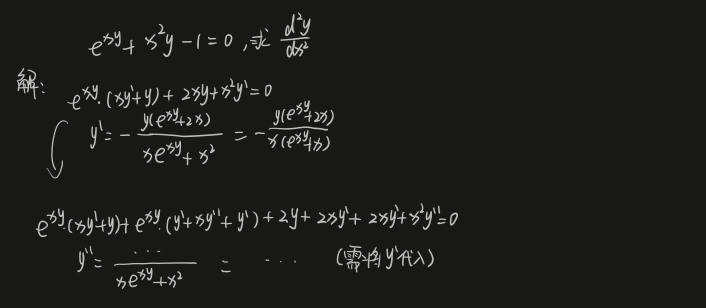 e^{xy} + x²y - 1 = 0 ,求 \frac{d²y}{dx²}
解: e^{xy}·(xy'+y) + 2xy + x²y' = 0
y' = - \frac{y(e^{xy}+2x)}{xe^{xy}+x²} = - \frac{y(e^{xy}+2x)}{x(e^{xy}+x)}
e^{xy}·(xy'+y) + e^{xy}·(y'+xy''+y') + 2y + 2xy' + 2xy' + x²y'' = 0
y'' = \frac{...}{xe^{xy}+x²} = ... (需将y'代入)